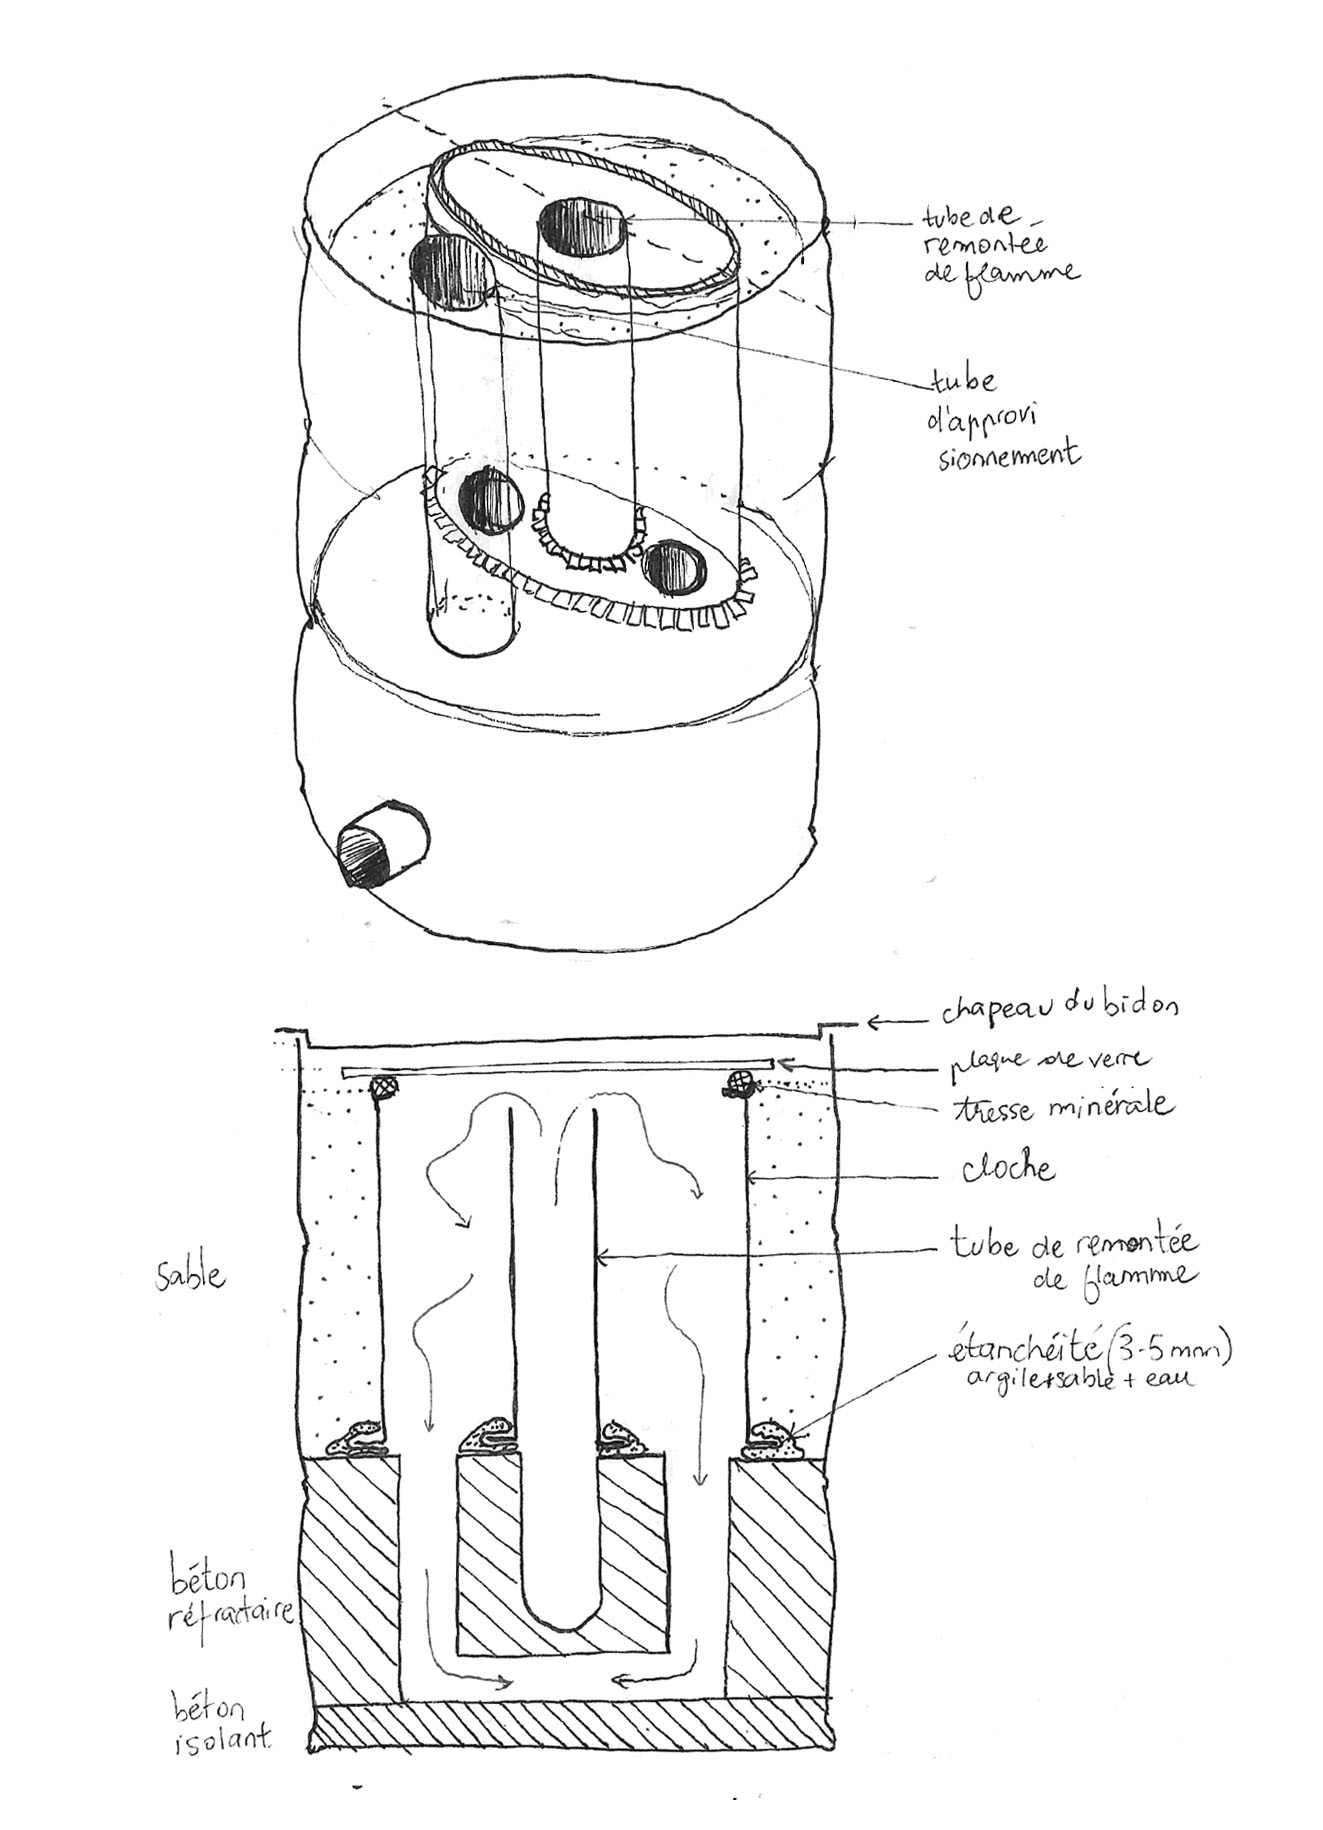 tube de
remontée
de flamme
tube
d'approvi
sionnement
chapeau du bidon
plaque de verre
tresse minérale
cloche
tube de remontée
de flamme
sable
étanchéité (3-5 mm)
argile+sable + eau
béton
réfractaire
béton
isolant